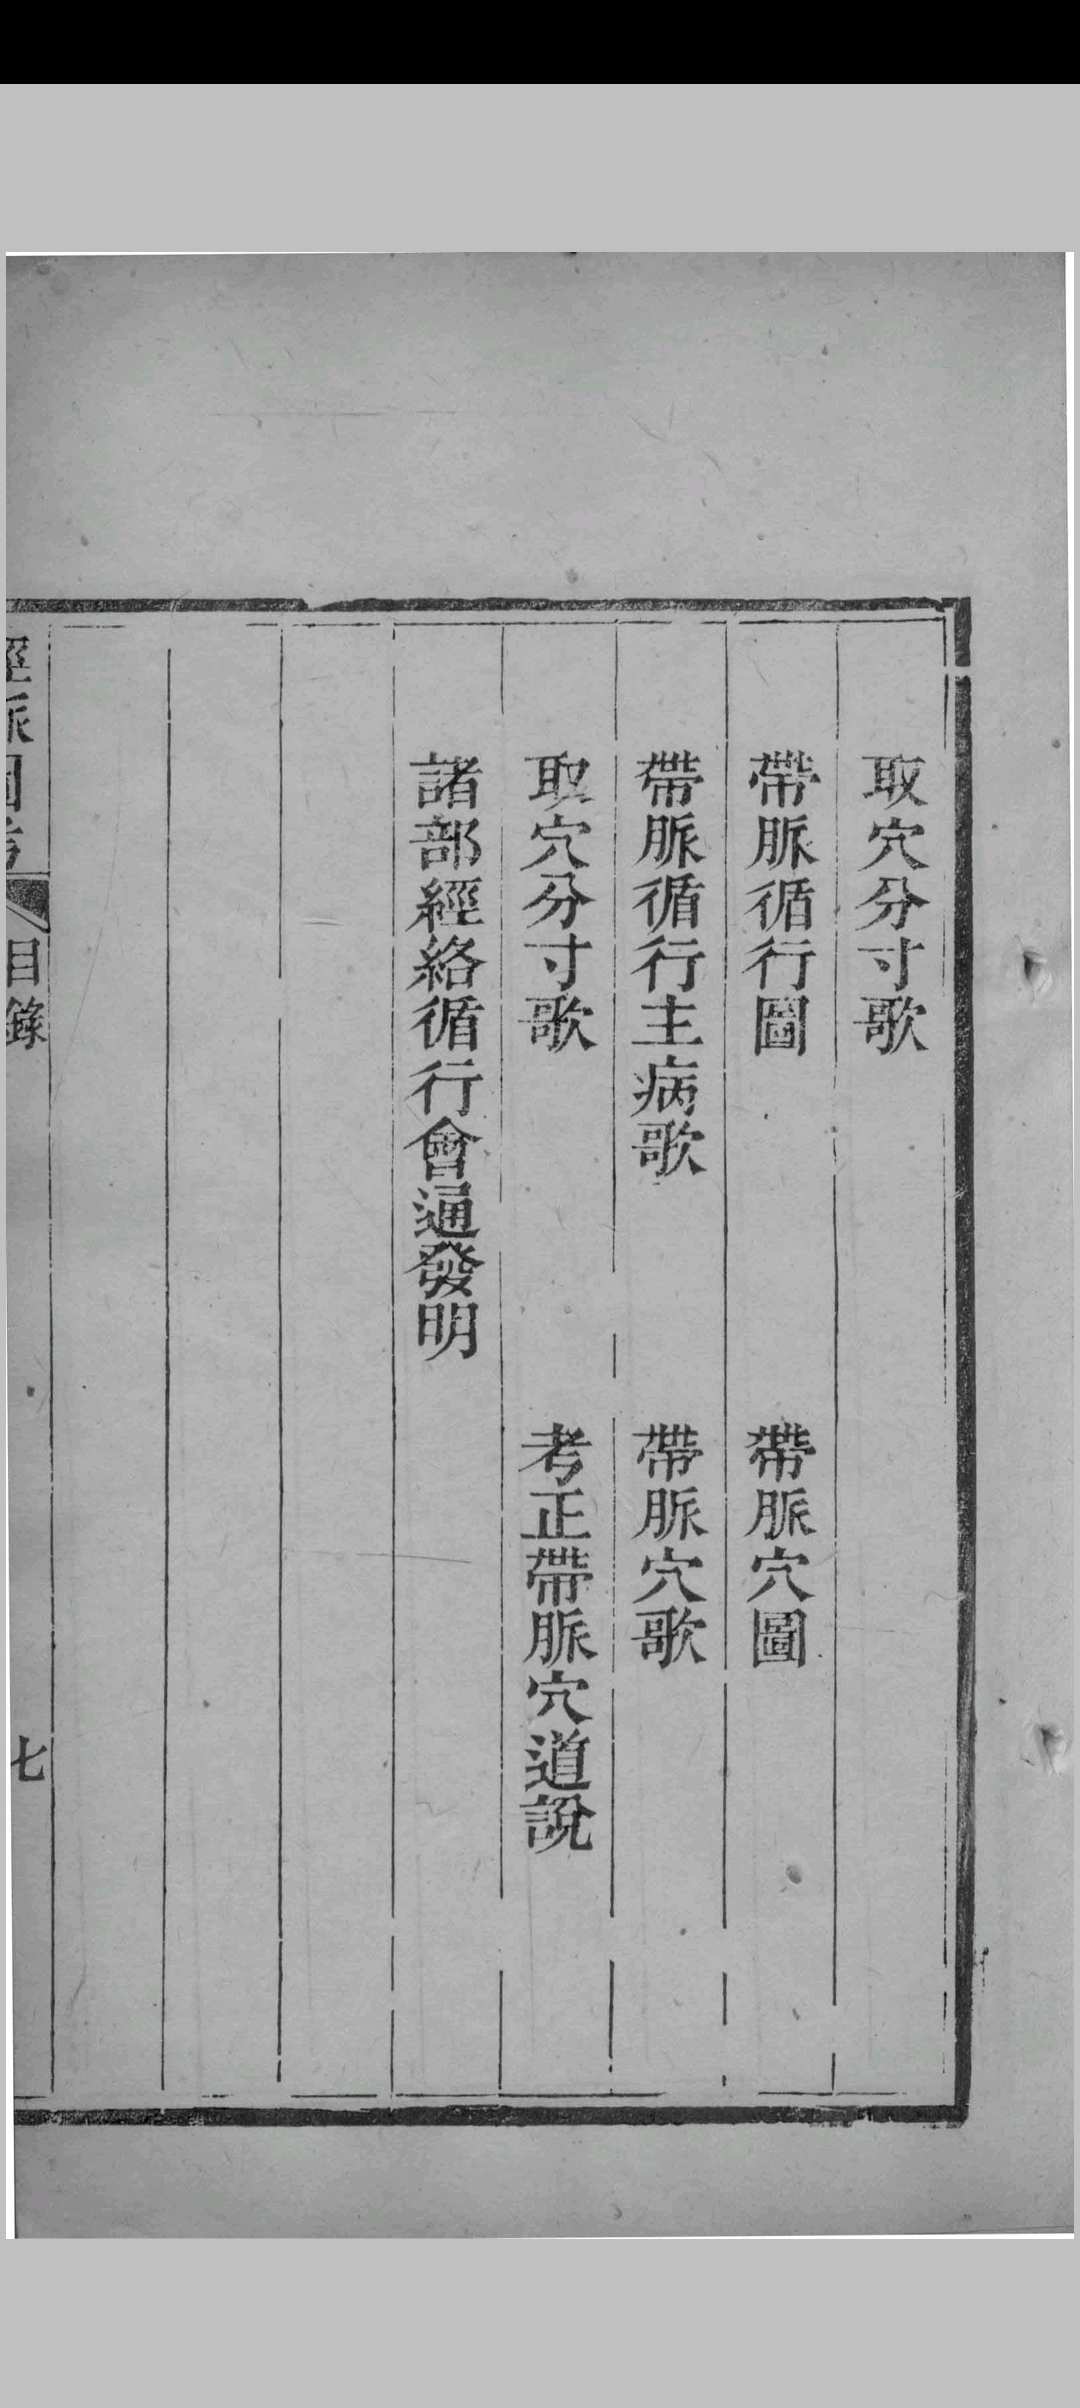 取穴分寸歌
帶脈循行圖　帶脈穴圖
帶脈循行主病歌　帶脈穴歌
取穴分寸歌　考正帶脈穴道說
諸部經絡循行會通發明
經脈圖考　目錄　七